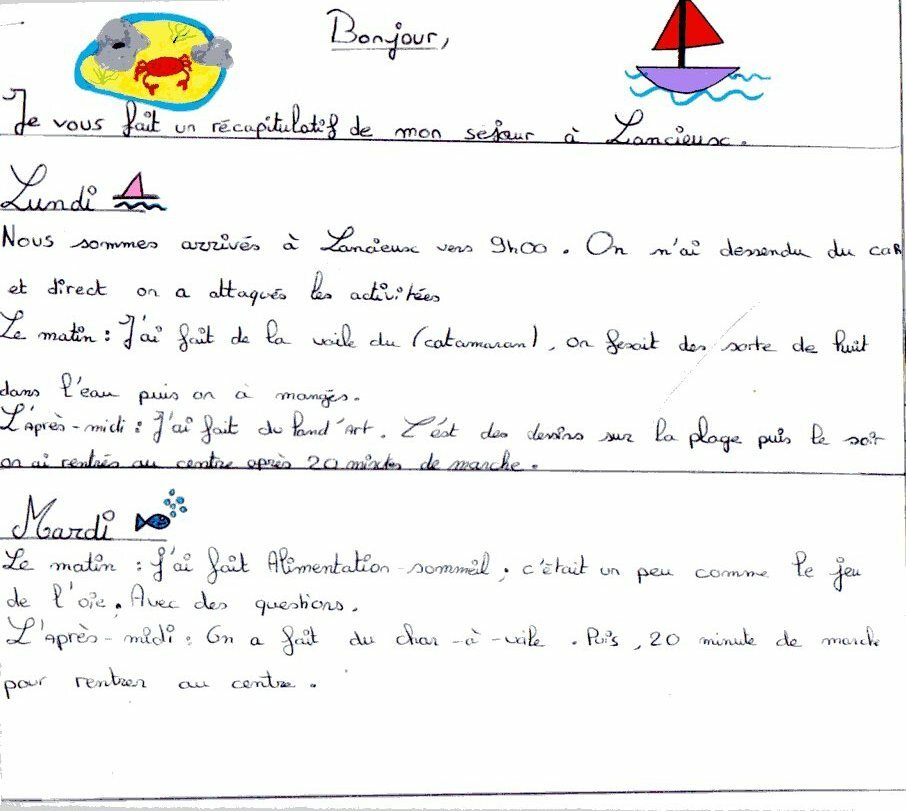 Bonjour,
Je vous fait un récapitulatif de mon sejour à Lancieux.
Lundi
Nous sommes arrivés à Lancieux vers 9h00. On n'ai dessendu du caR
et direct on a attaqués les activitées
Le matin : J'ai fait de la voile du (catamaran), on fesait des sorte de huit
dans l'eau puis on à mangés.
L'Après-midi : J'ai fait du land'Art. C'ést des dessins sur la plage puis le soir
on ai rentrés au centre après 20 minutes de marche.
Mardi
Le matin : J'ai fait Alimentation-sommeil, c'était un peu comme le jeu
de l'oie. Avec des questions.
L'Après-midi : On a fait du char-à-voile. Puis, 20 minute de marche
pour rentrer au centre.